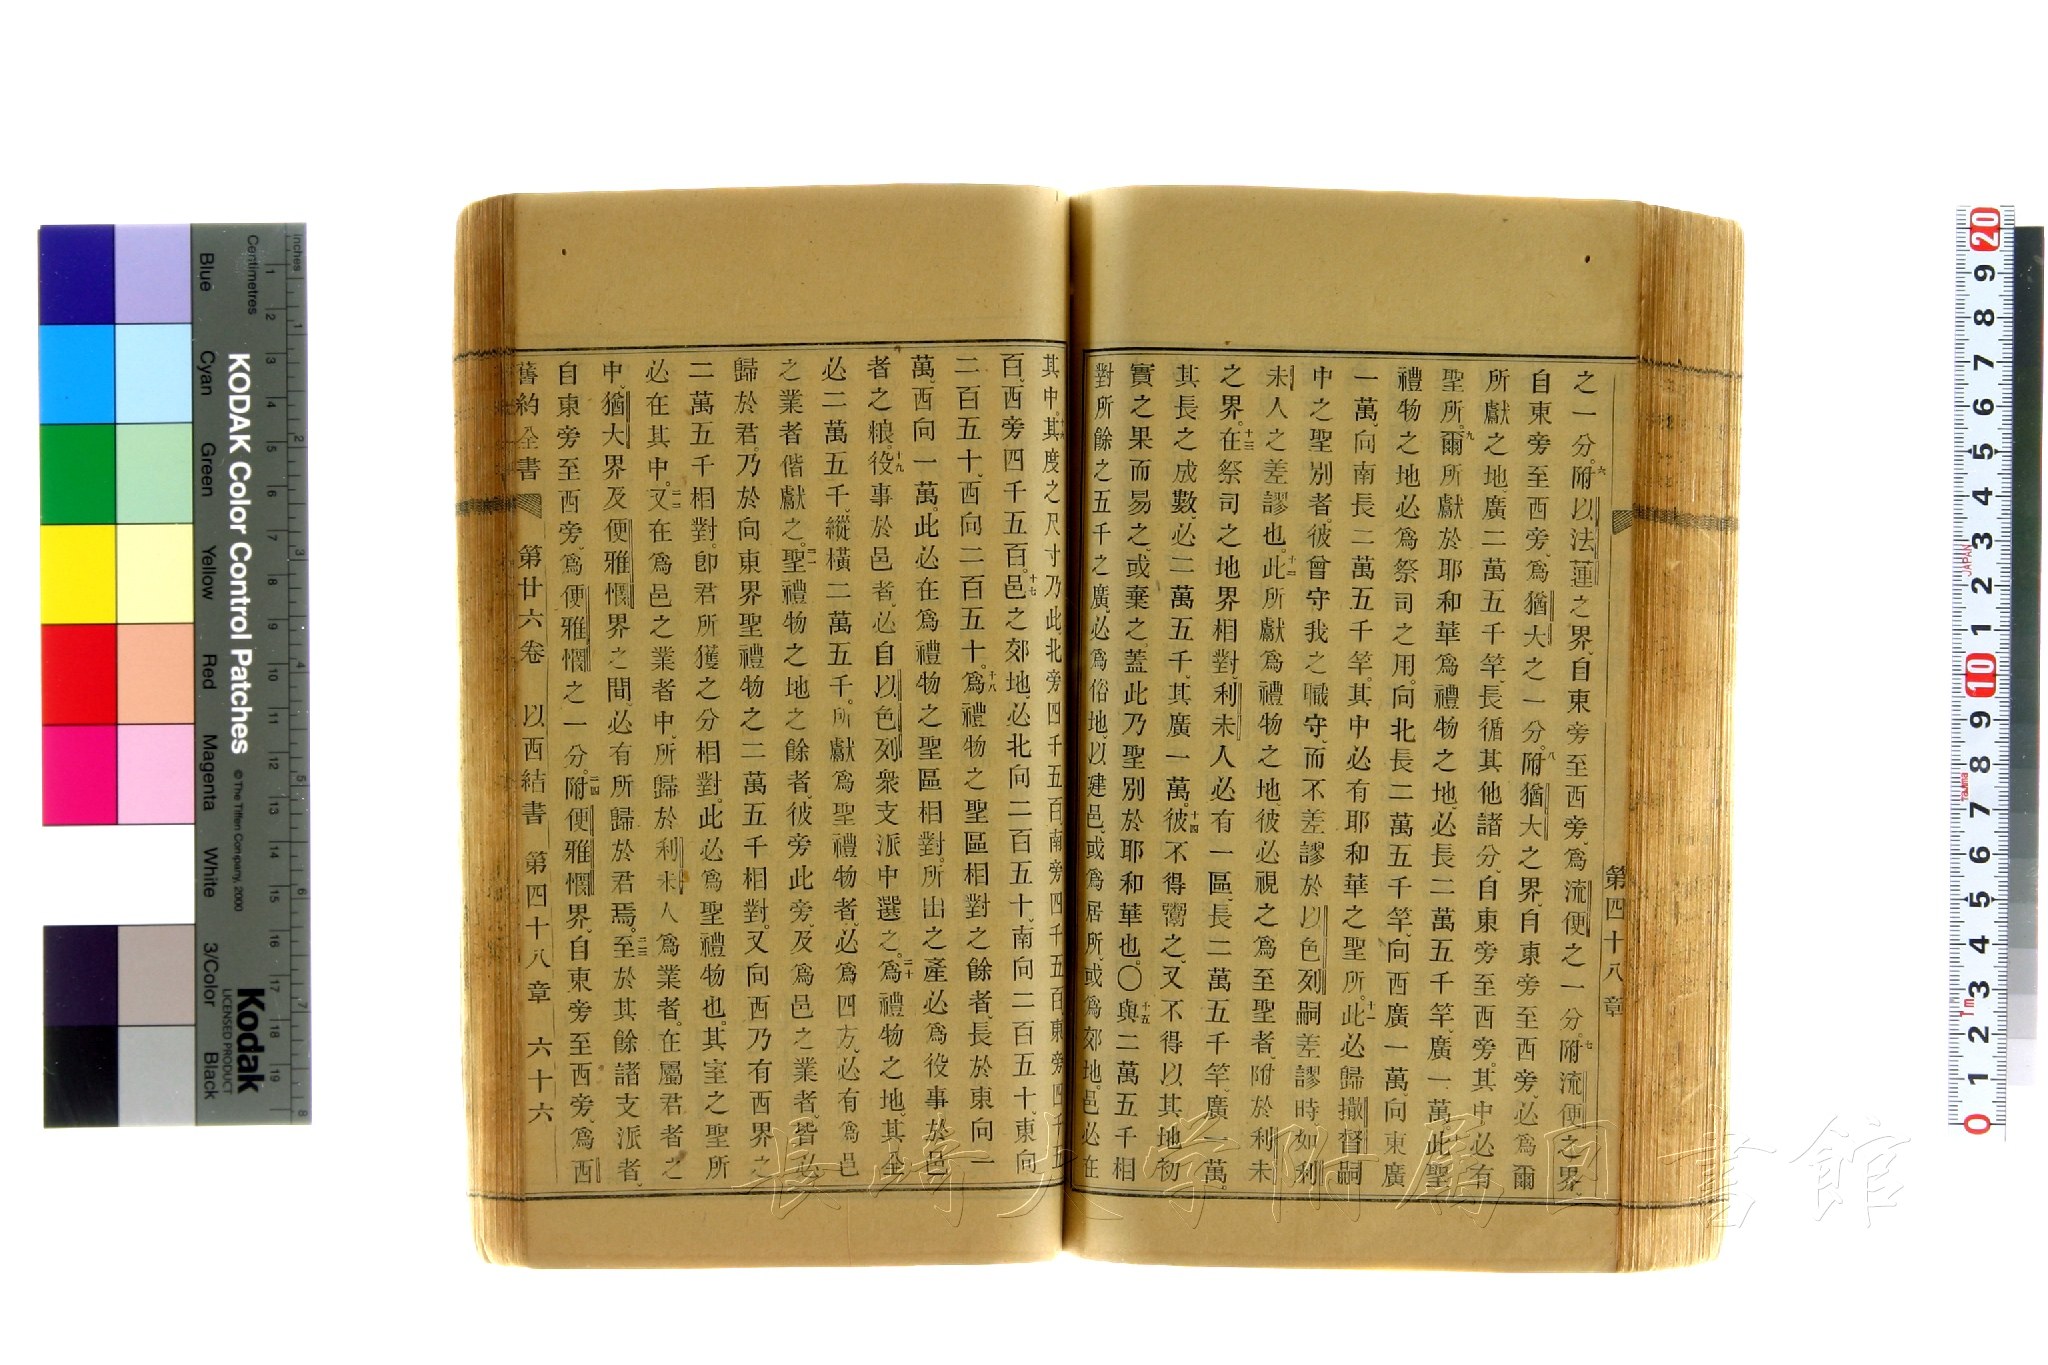 第四十八章
之一分。六附以法蓮之界、自東旁至西旁、爲流便之一分。七附流便之界、
自東旁至西旁、爲猶大之一分。八附猶大之界、自東旁至西旁、必爲爾
所獻之地、廣二萬五千竿、長循其他諸分、自東旁至西旁。其中必有
聖所。九爾所獻於耶和華爲禮物之地、必長二萬五千竿、廣一萬。此聖
禮物之地必爲祭司之用。向北長二萬五千竿、向西廣一萬、向東廣
一萬、向南長二萬五千竿。其中必有耶和華之聖所。十一此必歸撒督嗣
中之聖別者。彼曾守我之職守、而不差謬於以色列嗣差謬時如利
未人之差謬也。十二此所獻爲禮物之地、彼必視之爲至聖者、附於利未
之界。十三在祭司之地界相對、利未人必有一區、長二萬五千竿、廣一萬。
其長之成數必二萬五千、其廣一萬。十四彼不得鬻之、又不得以其地初
實之果而易之、或棄之、蓋此乃聖別於耶和華也。〇十五與二萬五千相
對所餘之五千之廣、必爲俗地、以建邑、或爲居所、或爲郊地。邑必在
其中。其度之尺寸乃此北旁四千五百、南旁四千五百、東旁四千五
百、西旁四千五百。十七邑之郊地、必北向二百五十、南向二百五十、東向
二百五十、西向二百五十。十八爲禮物之聖區相對之餘者、長於東向一
萬、西向一萬。此必在爲禮物之聖區相對。所出之產必爲役事於邑
者之粮。十九役事於邑者、必自以色列衆支派中選之。二十爲禮物之地、其全
必二萬五千、縱橫二萬五千。所獻爲聖禮物者、必爲四方、必有爲邑
之業者偕獻之。二一聖禮物之地之餘者、彼旁此旁、及爲邑之業者、皆必
歸於君。乃於向東界聖禮物之二萬五千相對。又向西乃有西界之
二萬五千相對。卽君所獲之分相對。此必爲聖禮物也。其室之聖所
必在其中。二二又在爲邑之業者中、所歸於利未人爲業者。在屬君者之
中、猶大界及便雅憫界之間、必有所歸於君焉。二三至於其餘諸支派者、
自東旁至西旁、爲便雅憫之一分。二四附便雅憫界、自東旁至西旁、爲西
舊約全書 第廿六卷 以西結書 第四十八章 六十六
長崎大学附属図書館
KODAK Color Control Patches
© The Tiffen Company, 2000
Kodak
LICENSED PRODUCT
Blue Cyan Green Yellow Red Magenta White 3/Color Black
Inches
Centimetres
1 2 3 4 5 6 7 8 9 10 11 12 13 14 15 16 17 18 19
1 2 3 4 5 6 7 8
20 9 8 7 6 5 4 3 2 1 10 9 8 7 6 5 4 3 2 1 0
JAPAN
Tajima